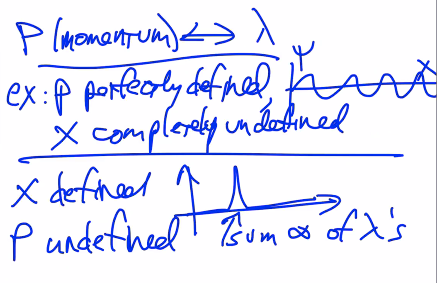 P (momentum) ↔ λ
ex: p perfectly defined ψ x
x completely undefined
X defined
P undefined sum ∞ of λ's